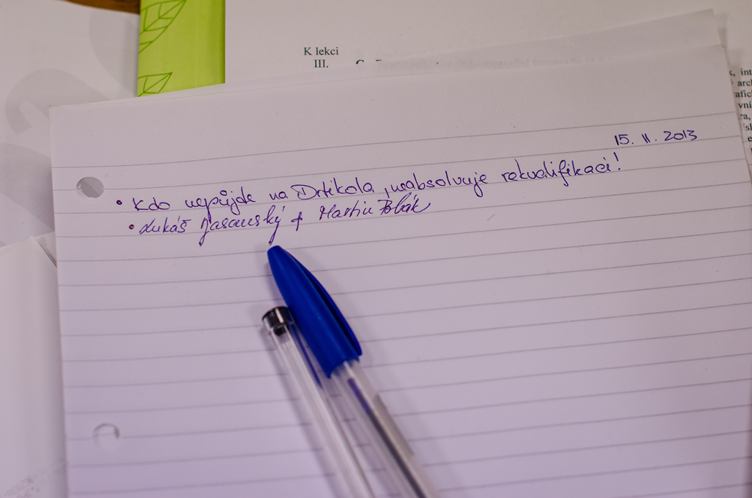 K lekci
III.
15. 11. 2013
• Kdo nepůjde na Drtikola, neabsolvuje rekvalifikaci!
• Lukáš Jasanský + Martin Polák